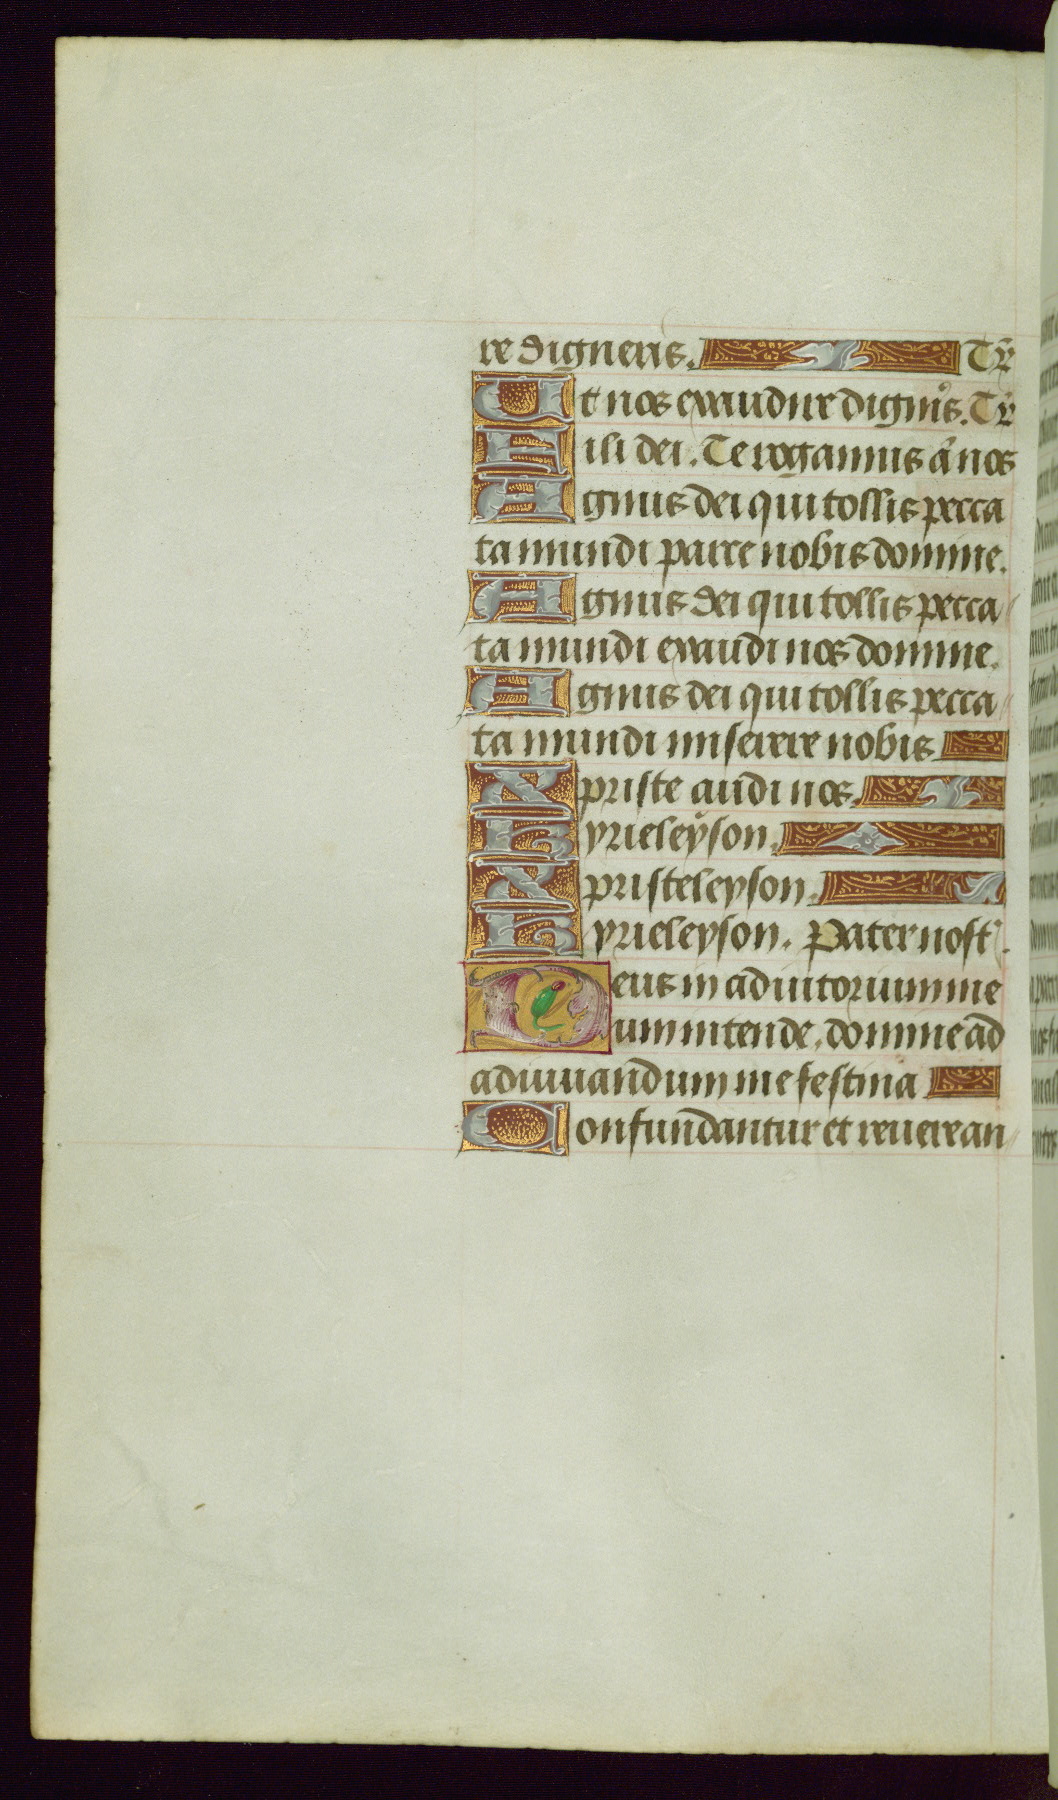 re digneris. Te r
Ut nos exaudire digneris. Te r
Fili dei. Te rogamus a nos
Agnus dei qui tollis pecca
ta mundi parce nobis domine.
Agnus dei qui tollis pecca
ta mundi exaudi nos domine.
Agnus dei qui tollis pecca
ta mundi miserere nobis
Xpriste audi nos.
Kyrieleyson.
Xpristeleyson.
Kyrieleyson. Pater nost.
Deus in adiutorium me
um intende. domine ad
adiuuandum me festina
Confundantur et reuerean